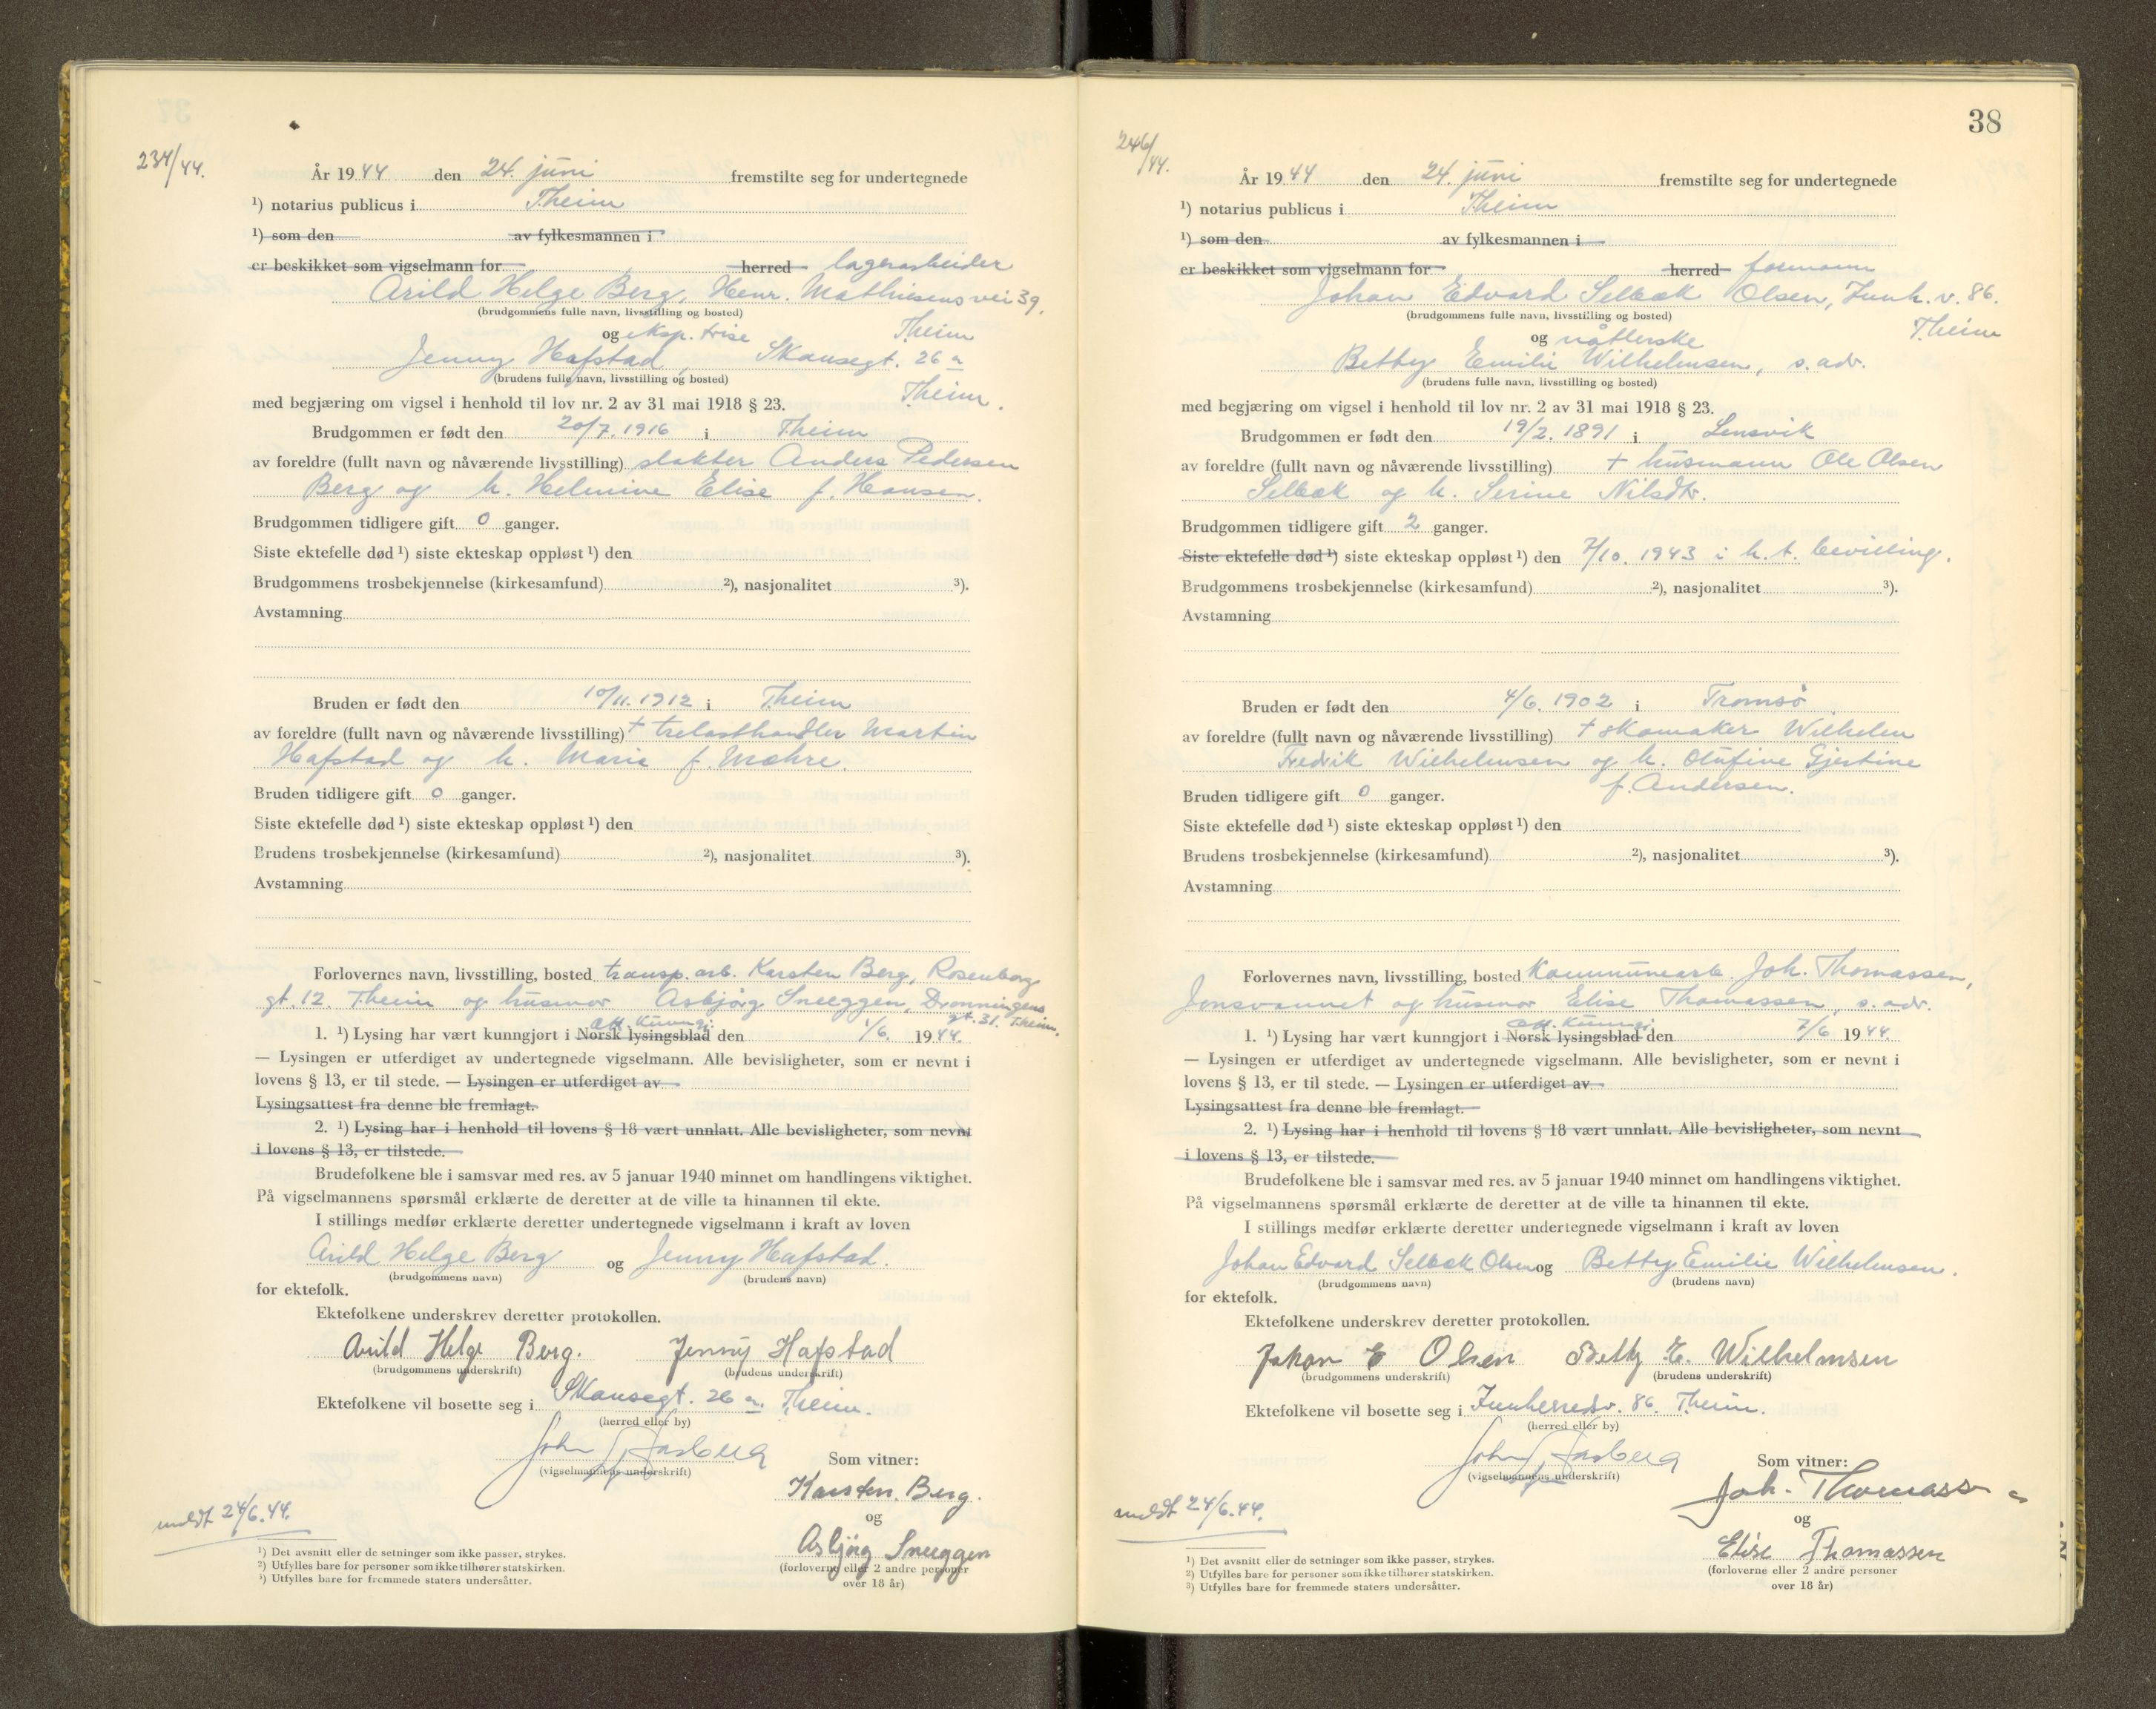 234/44.
År 1944 den 24. juni fremstilte seg for undertegnede
¹) notarius publicus i T.heim
¹) som den av fylkesmannen i
er beskikket som vigselmann for herred lagerarbeider
Arild Helge Berg, Henr. Mathiesens vei 39,
(brudgommens fulle navn, livsstilling og bosted)
og eksp. trise T.heim
Jenny Hafstad, Skansegt. 26 a
(brudens fulle navn, livsstilling og bosted)
T.heim.
med begjæring om vigsel i henhold til lov nr. 2 av 31 mai 1918 § 23.
Brudgommen er født den 20/7. 1916 i T.heim
av foreldre (fullt navn og nåværende livsstilling) slakter Anders Pedersen
Berg og h. Helmine Elise f. Hansen.
Brudgommen tidligere gift 0 ganger.
Siste ektefelle død ¹) siste ekteskap oppløst ¹) den
Brudgommens trosbekjennelse (kirkesamfund) ²), nasjonalitet ³).
Avstamning
Bruden er født den 10/11. 1912 i T.heim
av foreldre (fullt navn og nåværende livsstilling) + trelasthandler Martin
Hafstad og h. Maria f. Mæhre.
Bruden tidligere gift 0 ganger.
Siste ektefelle død ¹) siste ekteskap oppløst ¹) den
Brudens trosbekjennelse (kirkesamfund) ²), nasjonalitet ³).
Avstamning
Forlovernes navn, livsstilling, bosted transp. arb. Karsten Berg, Rosenborg
gt. 12. T.heim og husmor Asbjørg Sneeggen, Dronningens
gt. 31. T.heim.
off. kunngj.
1. ¹) Lysing har vært kunngjort i Norsk lysingsblad den 1/6. 1944.
— Lysingen er utferdiget av undertegnede vigselmann. Alle bevisligheter, som er nevnt i
lovens § 13, er til stede. — Lysingen er utferdiget av
Lysingsattest fra denne ble fremlagt.
2. ¹) Lysing har i henhold til lovens § 18 vært unnlatt. Alle bevisligheter, som nevnt
i lovens § 13, er tilstede.
Brudefolkene ble i samsvar med res. av 5 januar 1940 minnet om handlingens viktighet.
På vigselmannens spørsmål erklærte de deretter at de ville ta hinannen til ekte.
I stillings medfør erklærte deretter undertegnede vigselmann i kraft av loven
Arild Helge Berg og Jenny Hafstad.
(brudgommens navn) (brudens navn)
for ektefolk.
Ektefolkene underskrev deretter protokollen.
Arild Helge Berg. Jenny Hafstad
(brudgommens underskrift) (brudens underskrift)
Ektefolkene vil bosette seg i Skansegt. 26 a. T.heim.
(herred eller by)
John Aasberg
(vigselmannens underskrift)
Som vitner:
Karsten. Berg.
og
Asbjørg Sneeggen
(forloverne eller 2 andre personer
over 18 år)
meldt 24/6.44.
¹) Det avsnitt eller de setninger som ikke passer, strykes.
²) Utfylles bare for personer som ikke tilhører statskirken.
³) Utfylles bare for fremmede staters undersåtter.
38
246/44.
År 1944 den 24. juni fremstilte seg for undertegnede
¹) notarius publicus i T.heim
¹) som den av fylkesmannen i
er beskikket som vigselmann for herred formann
Johan Edvard Selbæk Olsen, Innh. v. 86.
(brudgommens fulle navn, livsstilling og bosted)
T.heim
og nåtlerske
Betty Emilie Wilhelmsen, s. adr.
(brudens fulle navn, livsstilling og bosted)
med begjæring om vigsel i henhold til lov nr. 2 av 31 mai 1918 § 23.
Brudgommen er født den 19/2. 1891 i Lensvik
av foreldre (fullt navn og nåværende livsstilling) + husmann Ole Olsen
Selbæk og h. Serine Nilsdtr.
Brudgommen tidligere gift 2 ganger.
Siste ektefelle død ¹) siste ekteskap oppløst ¹) den 7/10. 1943 i h. t. bevilling.
Brudgommens trosbekjennelse (kirkesamfund) ²), nasjonalitet ³).
Avstamning
Bruden er født den 4/6. 1902 i Tromsø
av foreldre (fullt navn og nåværende livsstilling) + skomaker Wilhelm
Fredrik Wilhelmsen og h. Olufine Gjertine
f. Andersen.
Bruden tidligere gift 0 ganger.
Siste ektefelle død ¹) siste ekteskap oppløst ¹) den
Brudens trosbekjennelse (kirkesamfund) ²), nasjonalitet ³).
Avstamning
Forlovernes navn, livsstilling, bosted Kommunearb. Joh. Thomassen,
Jonsvannet og husmor Elise Thomassen, s. adr.
off. kunngj.
1. ¹) Lysing har vært kunngjort i Norsk lysingsblad den 7/6 1944.
— Lysingen er utferdiget av undertegnede vigselmann. Alle bevisligheter, som er nevnt i
lovens § 13, er til stede. — Lysingen er utferdiget av
Lysingsattest fra denne ble fremlagt.
2. ¹) Lysing har i henhold til lovens § 18 vært unnlatt. Alle bevisligheter, som nevnt
i lovens § 13, er tilstede.
Brudefolkene ble i samsvar med res. av 5 januar 1940 minnet om handlingens viktighet.
På vigselmannens spørsmål erklærte de deretter at de ville ta hinannen til ekte.
I stillings medfør erklærte deretter undertegnede vigselmann i kraft av loven
Johan Edvard Selbæk Olsen og Betty Emilie Wilhelmsen.
(brudgommens navn) (brudens navn)
for ektefolk.
Ektefolkene underskrev deretter protokollen.
Johan E Olsen Betty E. Wilhelmsen
(brudgommens underskrift) (brudens underskrift)
Ektefolkene vil bosette seg i Innherredsv. 86. T.heim.
(herred eller by)
John Aasberg
(vigselmannens underskrift)
Som vitner:
Joh. Thomassen
og
Elise Thomassen
(forloverne eller 2 andre personer
over 18 år)
meldt 24/6.44.
¹) Det avsnitt eller de setninger som ikke passer, strykes.
²) Utfylles bare for personer som ikke tilhører statskirken.
³) Utfylles bare for fremmede staters undersåtter.